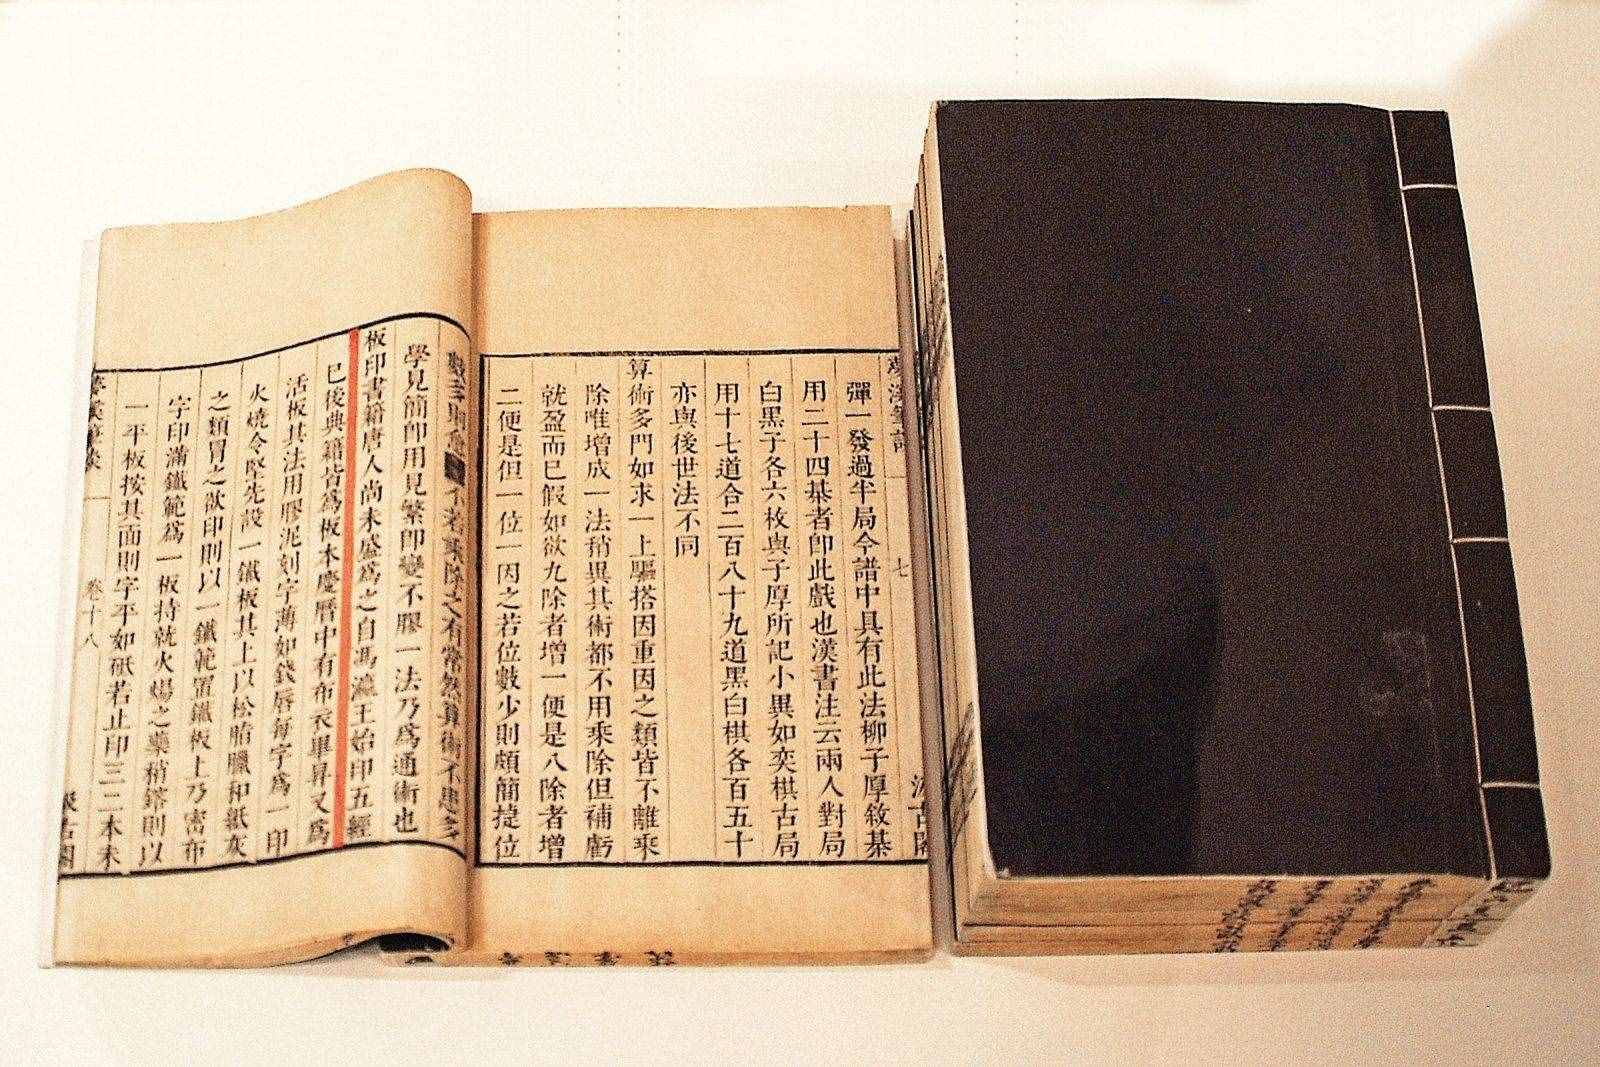 夢溪筆談
七
汲古閣
彈一發過半局令譜中具有此法柳子厚敘棊
用二十四棊者卽此戲也漢書注云兩人對局
白黑子各六枚與子厚所記小異如奕棋古局
用十七道合二百八十九道黑白棋各百五十
亦與後世法不同
算術多門如求一上驅搭因重因之類皆不離乘
除唯增成一法稍異其術都不用乘除但補虧
就盈而已假如欲九除者增一便是八除者增
二便是但一位一因之若位數少則頗簡捷位
數多則愈 不若乘除之有常然算術不患多
學見簡卽用見繁卽變不膠一法乃爲通術也
板印書籍唐人尚未盛爲之自馮瀛王始印五經
已後典籍皆爲板本慶曆中有布衣畢昇又爲
活板其法用膠泥刻字薄如錢唇每字爲一印
火燒令堅先設一鐵板其上以松脂臘和紙灰
之類冒之欲印則以一鐵範置鐵板上乃密布
字印滿鐵範爲一板持就火煬之藥稍鎔則以
一平板按其面則字平如砥若止印三二本未
夢溪筆談
卷十八
汲古閣